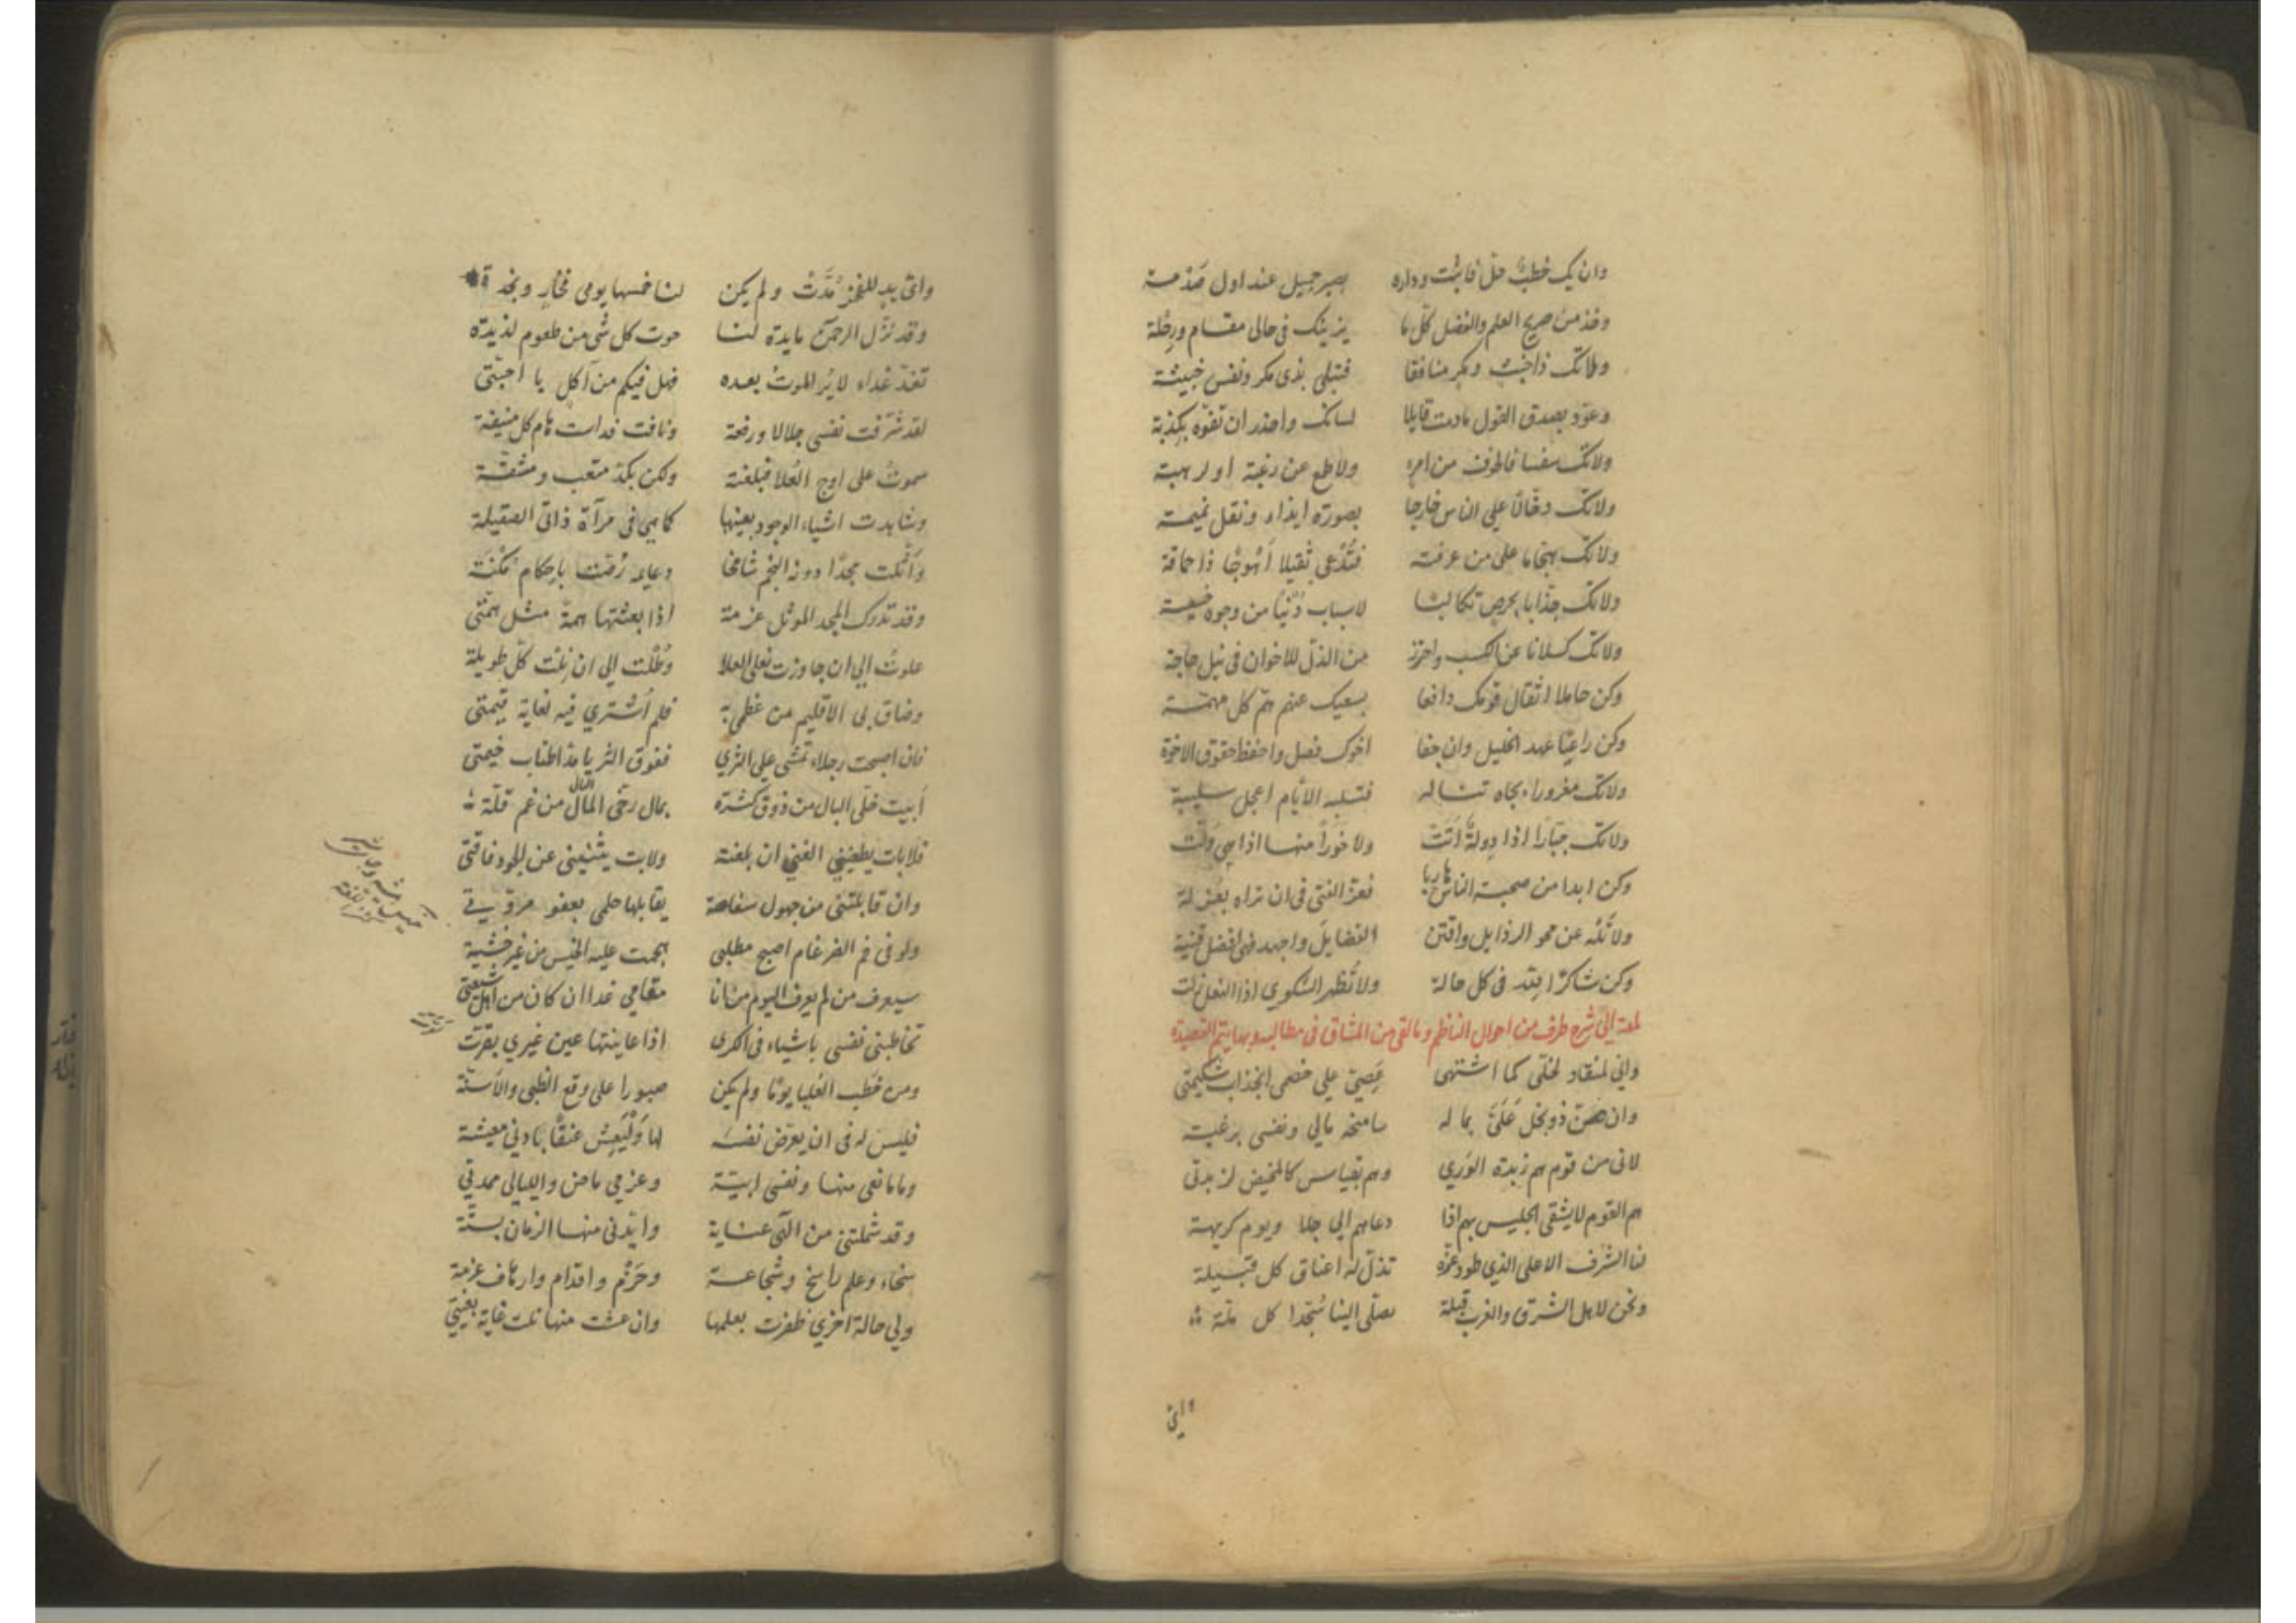 وان يك خطبٌ حلّ فاثبت وداره بصبر جميل عند اول صدمة
وخذ من صريح العلم والفضل كل ما يزينك فى حالى مقام ورحلة
ولا تك ذا خبث ومكر منافقا فتبلى بذى مكر ونفس خبيثة
وعوّد بصدق القول مادمت قايلا لسانك واحذر ان تفوّه بكذبة
ولا تك من امرء ولا عن رغبة او لرهبة
ولا تك دخالا على الناس خارجا بصورة ايذاء ونقل نميمة
ولا تك هجّاما على من عرفته فتُدْعى ثقيلا أَهْوجًا ذا حماقة
ولا تك جذّابا بحرص تكالبا لاسباب دُنْيا من وجوه خسيسة
ولا تك كسلانا عن الكسب واحترز من الذلّ للاخوان فى نيل حاجة
وكن حاملا اثقال قومك دافعا بسعيك عنهم همّ كل مهمّة
وكن راعيًا عهد الخليل وان جفا اخوك فصل واحفظ حقوق الاخوة
ولا تك مغرورا بجاه تناله فتسلبه الأيام اعجل سليبة
ولا تك جبّارا اذا دولة اتَتْ ولا خَوِراً منها اذا هى ولّت
وكن ابدا من صحبة الناس هاربا فعزّ الفتى فى ان تراه بعزلة
ولا تَلْهُ عن محو الرذايل واقتن الفضايل واجهد فهى افضل قنية
وكن شاكرًا لله فى كل حالة ولا تُظهر الشكوي اذا النعل زلت
لمعة الى شرح طرف من احوال الناظم وما لقى من المشاق فى مطالبه وبها يتم القصيدة
واني لمنقاد لخلّى كما اشتهى عَصِيّ على خصمى انجذاب شكيمتى
وان ضنّ ذو بخل عَلَيَّ بما له سامنحه مالي ونفسى برغبة
لانى من قوم هم زبدة الوري وهم بقياس كالمخيض لزبدتى
هم القوم لا يشقى الجليس بهم اذا دعاهم الى جلا ويوم كريهة
لنا الشرف الاعلى الذي طود عزّه تذلّ له اعناق كل قبيلة
ونحن لاهل الشرق والغرب قبلة يصلّى الينا سُجّدا كل ملّة
واىّ
واىّ يدٍ للفخر مُدَّتْ ولم يكن لنا خمسها يومى فخار ونجدة
وقد نزّل الرحمن مايدة لنا حوت كل شى من طعوم لذيذة
تغذّ غذاء لا يُر الموتُ بعده فهل فيكم من آكل يا أحبّتى
لقد شَرُفت نفسى جلالا ورفعة ونافت فداست هام كل منيفة
سموتُ على اوج العُلا فبلغته ولكن بكدّ متعب ومشقّة
وشاهدت اشياء الوجود بعينها كما هى فى مرآة ذاتى الصقيلة
وَأثّلت مجدًا دونه النجم شامخا دعايمه زُفت باحكام مُكْنَة
وقد تدرك المجد الموثل عزمة اذا بعثتها همة مثل همّتى
علوتُ الى ان جاوزت نعلى العلا وطُلْت الى ان نِلْت كلّ طويلة
وضاق بى الاقليم من عظمى به فلم أشتري فيه لغاية قيمتى
فان اصبحت رجلاء تمشى على الثري ففوق الثريا مدّ اطناب خيمتى
أبيت خلّى البال من ذوق كثرة بمال رخى المال البال من غم قلّة
فلا بات يطغينى الغنى ان بلغته ولا بت يثنينى عن الجود فاقتى
وان قابلتنى من جهول سفاهة يقابلها حلمى بعفو مروّتى
ولو فى فم الضرغام اصبح مطلبى هجمت عليه الخيس من غير خشية
سيعرف من لم يعرف اليوم من انا مقامى غدا ان كان من اهل شيعتى
تخاطبنى نفسى باشياء فى الكرى اذا عاينتها عين غيري بقرّت
ومن خطب العُليا يومًا ولم يكن صبورا على وقع الظبى والأسنّة
فليس له فى ان يعرّض نفسه لها وَلْيَعِش عنقًا بادنى معيشة
وما مانعى منها ونفسى ابيّة وعزمي ماض والليالى ممدتي
وقد شملتنى من الٓهى عناية وايّدنى منها الزمان بستّة
سخاء وعلم راسخ وشجاعة وحَزْم واقدام وارهاف عزمة
ولي حالة اخري ظفرت بعلمها وان عشت منها نلت غاية بغيتي